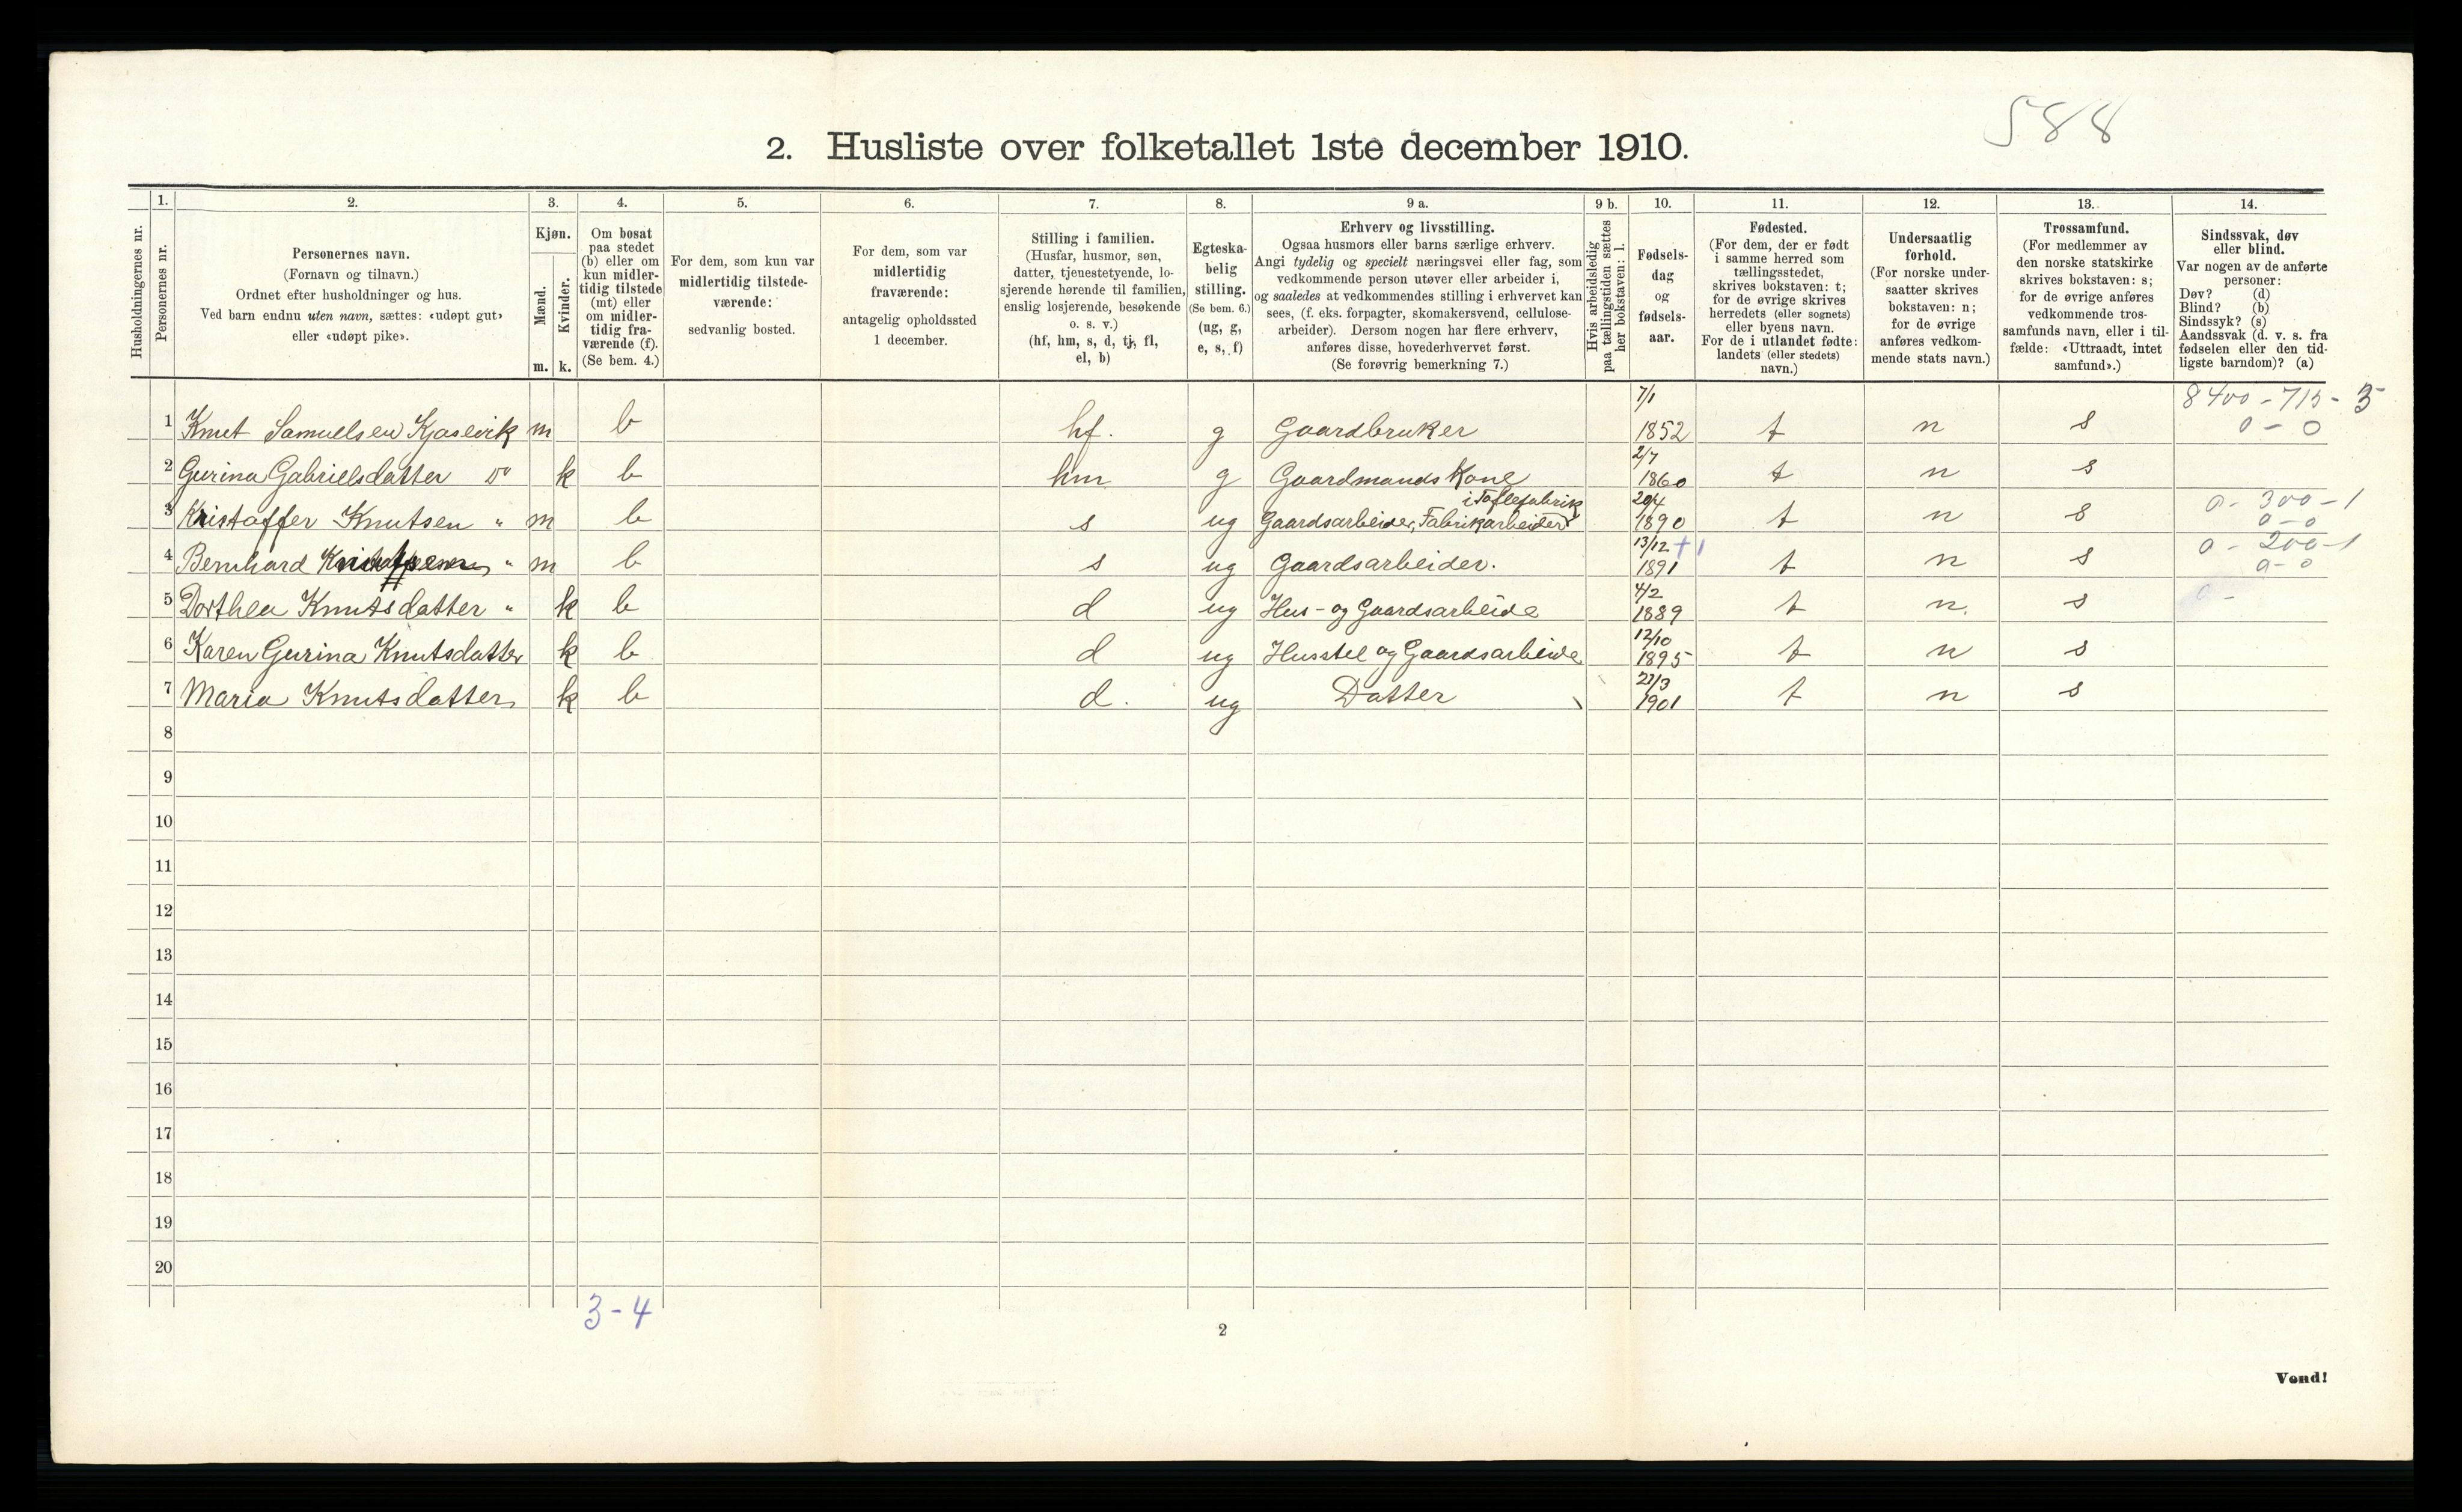 588
2. Husliste over folketallet 1ste december 1910.
Husholdningernes nr.
1.
Personernes nr.
2.
Personernes navn.
(Fornavn og tilnavn.)
Ordnet efter husholdninger og hus.
Ved barn endnu uten navn, sættes: «udøpt gut»
eller «udøpt pike».
3.
Kjøn.
Mænd.
Kvinder.
m. k.
4.
Om bosat
paa stedet
(b) eller om
kun midler-
tidig tilstede
(mt) eller
om midler-
tidig fra-
værende (f).
(Se bem. 4.)
5.
For dem, som kun var
midlertidig tilstede-
værende:
sedvanlig bosted.
6.
For dem, som var
midlertidig
fraværende:
antagelig opholdssted
1 december.
7.
Stilling i familien.
(Husfar, husmor, søn,
datter, tjenestetyende, lo-
sjerende hørende til familien,
enslig losjerende, besøkende
o. s. v.)
(hf, hm, s, d, tj, fl,
el, b)
8.
Egteska-
belig
stilling.
(Se bem. 6.)
(ug, g,
e, s, f)
9 a.
Erhverv og livsstilling.
Ogsaa husmors eller barns særlige erhverv.
Angi tydelig og specielt næringsvei eller fag, som
vedkommende person utøver eller arbeider i,
og saaledes at vedkommendes stilling i erhvervet kan
sees, (f. eks. forpagter, skomakersvend, cellulose-
arbeider). Dersom nogen har flere erhverv,
anføres disse, hovederhvervet først.
(Se forøvrig bemerkning 7.)
9 b.
Hvis arbeidsledig
paa tællingstiden sættes
her bokstaven: l.
10.
Fødsels-
dag
og
fødsels-
aar.
11.
Fødested.
(For dem, der er født
i samme herred som
tællingsstedet,
skrives bokstaven: t;
for de øvrige skrives
herredets (eller sognets)
eller byens navn.
For de i utlandet fødte:
landets (eller stedets)
navn.)
12.
Undersaatlig
forhold.
(For norske under-
saatter skrives
bokstaven: n;
for de øvrige
anføres vedkom-
mende stats navn.)
13.
Trossamfund.
(For medlemmer av
den norske statskirke
skrives bokstaven: s;
for de øvrige anføres
vedkommende tros-
samfunds navn, eller i til-
fælde: «Uttraadt, intet
samfund».)
14.
Sindssvak, døv
eller blind.
Var nogen av de anførte
personer:
Døv? (d)
Blind? (b)
Sindssyk? (s)
Aandssvak (d. v. s. fra
fødselen eller den tid-
ligste barndom)? (a)
7/1 8400 - 715 - 3
1 Knut Samuelsen Kjosevik m b hf. g Gaardbruker 1852 t n s 0 - 0
2/7
2 Gurina Gabrielsdatter do k b hm g Gaardmands Kone 1860 t n s
i Toflefabrik 20/4 0 - 300 - 1
3 Kristoffer Knutsen " m b s ug Gaardsarbeider, Fabrikarbeider 1890 t n s 0 - 0
13/12 + 1 0 - 200 - 1
4 Bernhard " m b s ug Gaardsarbeider. 1891 t n s 0 - 0
4/2 0 -
5 Dorthea Knutsdatter " k b d ug Hus- og Gaardsarbeide 1889 t n. s
12/10
6 Karen Gurina Knutsdatter k b d ug Husstel og Gaardsarbeide 1895 t n s
21/3
7 Maria Knutsdatter k b d. ug Datter 1901 t n s
8
9
10
11
12
13
14
15
16
17
18
19
20
3 - 4
2
Vend!